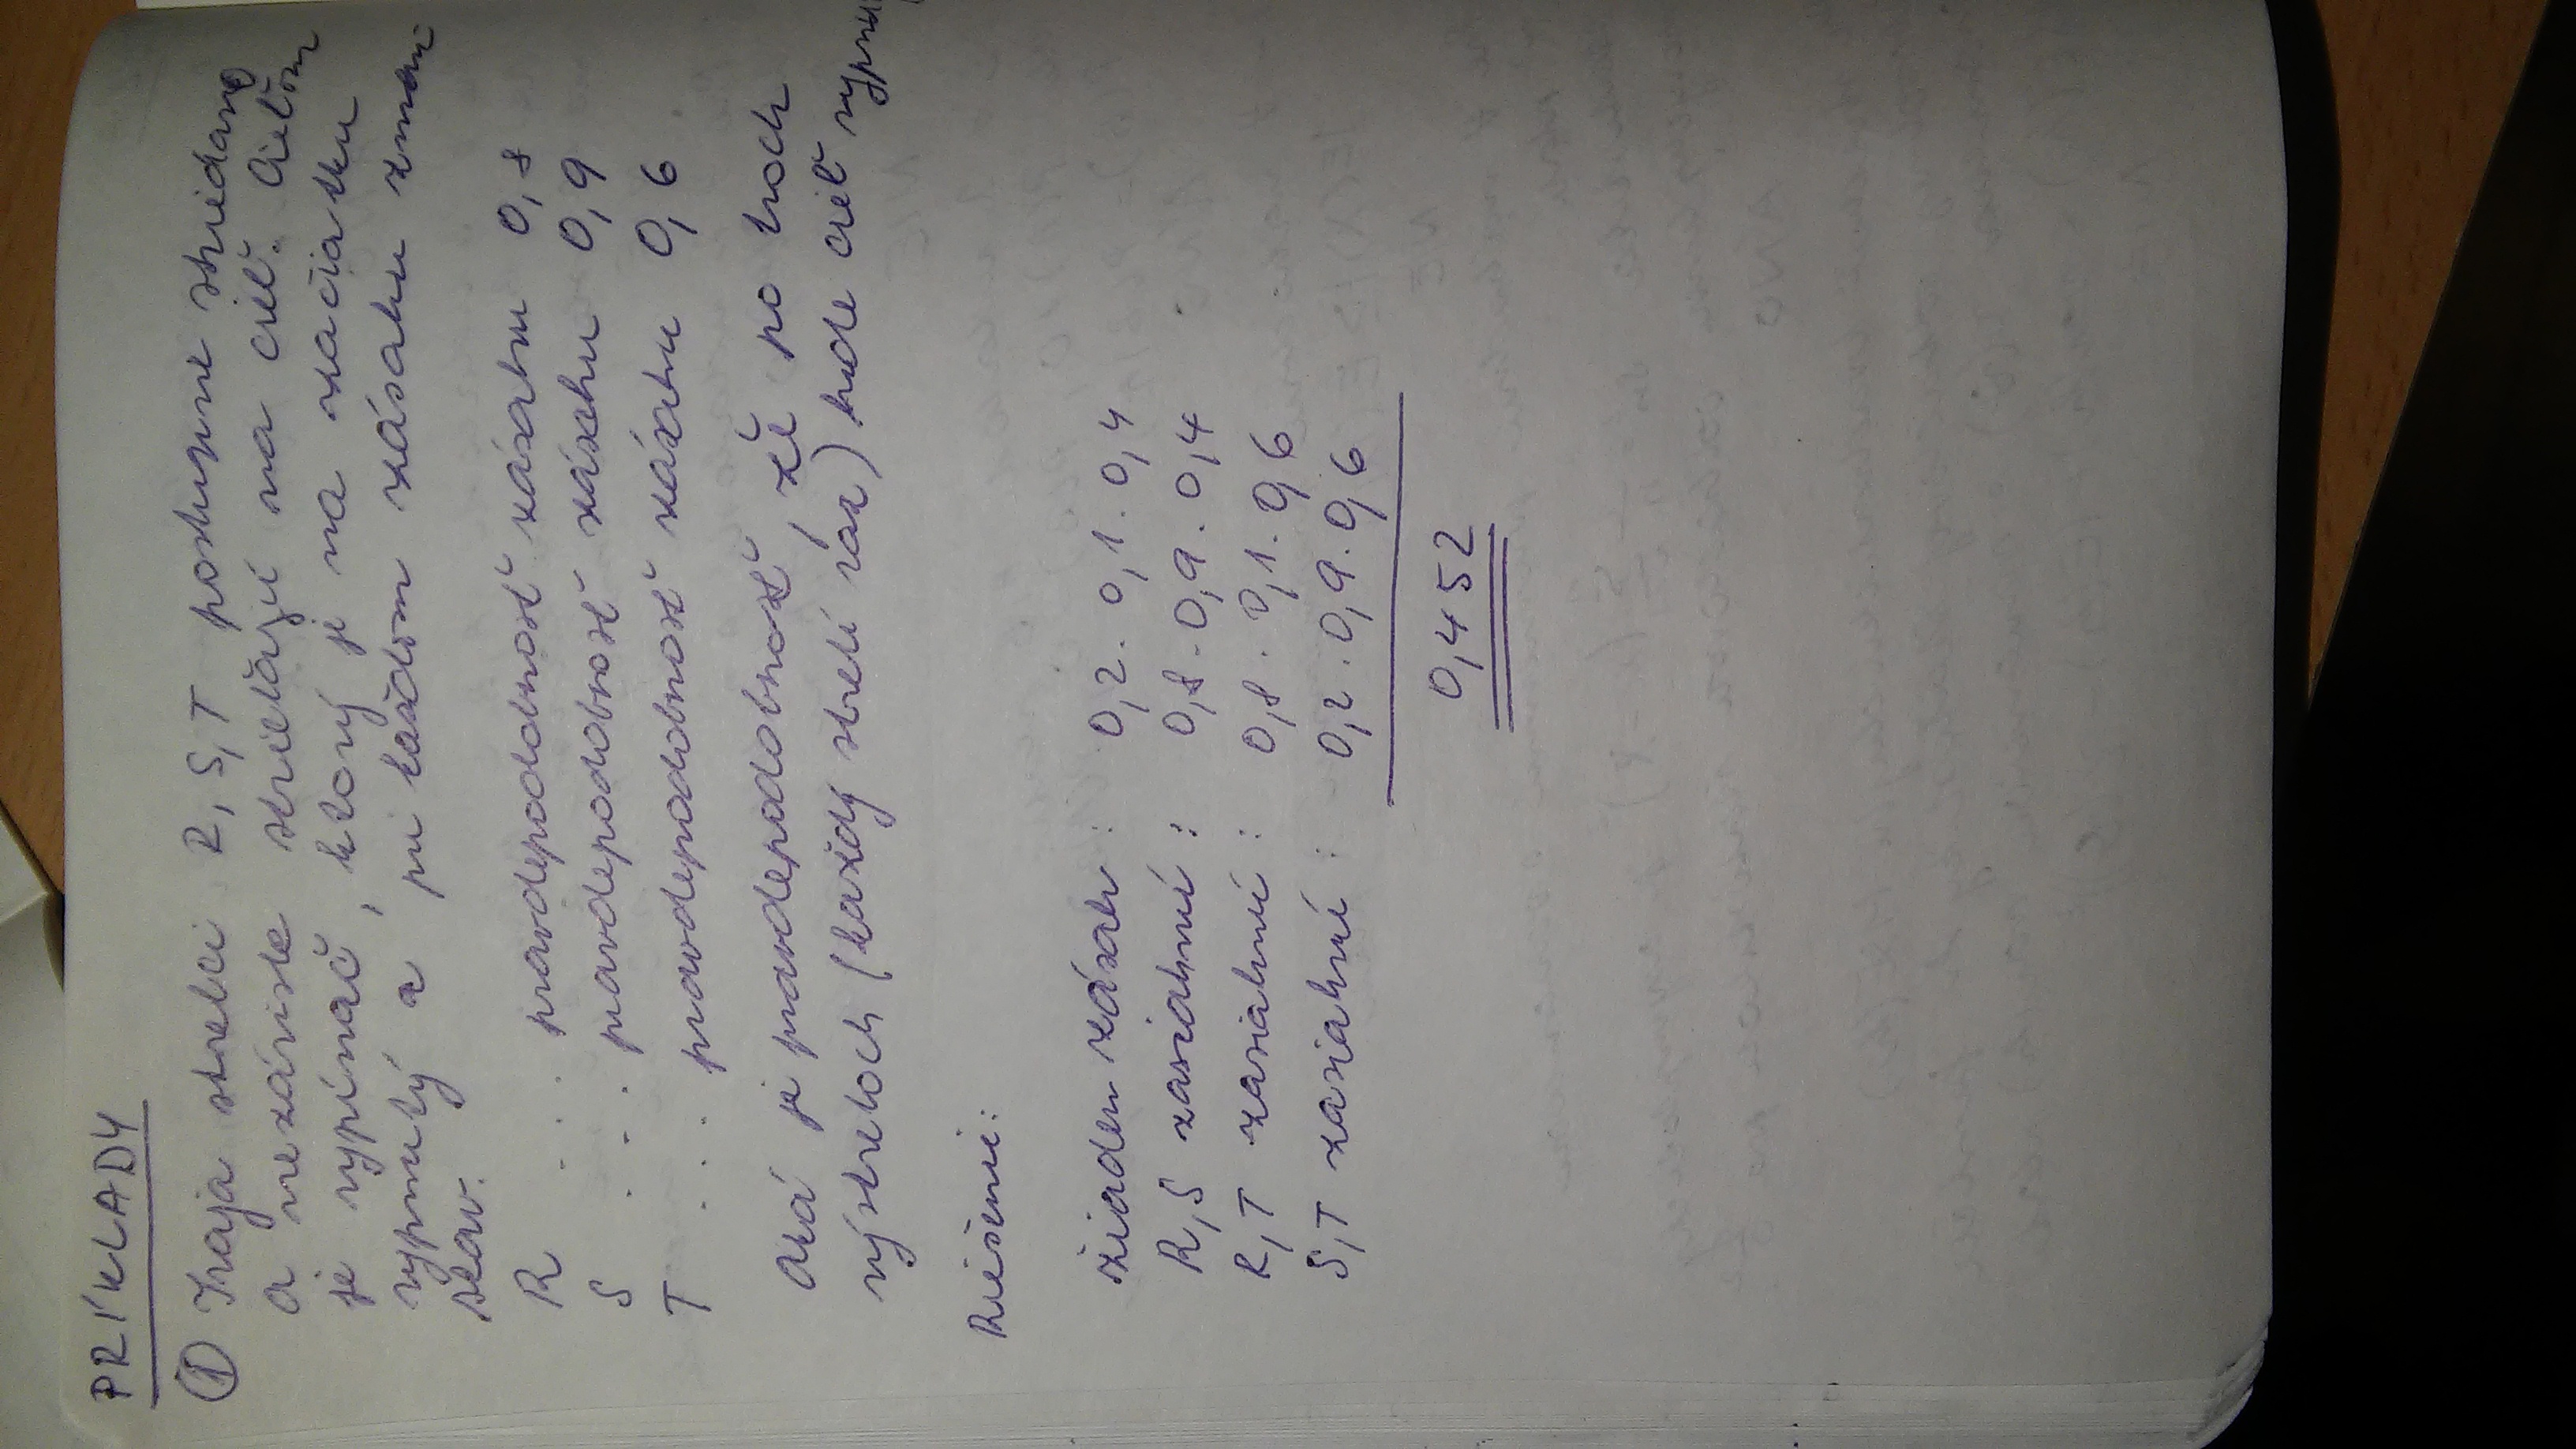 PRÍKLADY
① Traja strelci R, S, T postupne striedavo
a nezávisle strieľajú na cieľ. Cieľom
je vypínač, ktorý je na začiatku
vypnutý a pri každom zásahu zmení
stav.
R ... pravdepodobnosť zásahu 0,8
S ... pravdepodobnosť zásahu 0,9
T ... pravdepodobnosť zásahu 0,6
Aká je pravdepodobnosť, že po troch
výstreloch (každý strelí raz) bude cieľ vypnu
Riešenie:
žiaden zásah : 0,2 . 0,1 . 0,4
R, S zasiahnú : 0,8 . 0,9 . 0,4
R, T zasiahnú : 0,8 . 0,1 . 0,6
S, T zasiahnú : 0,2 . 0,9 . 0,6
0,452